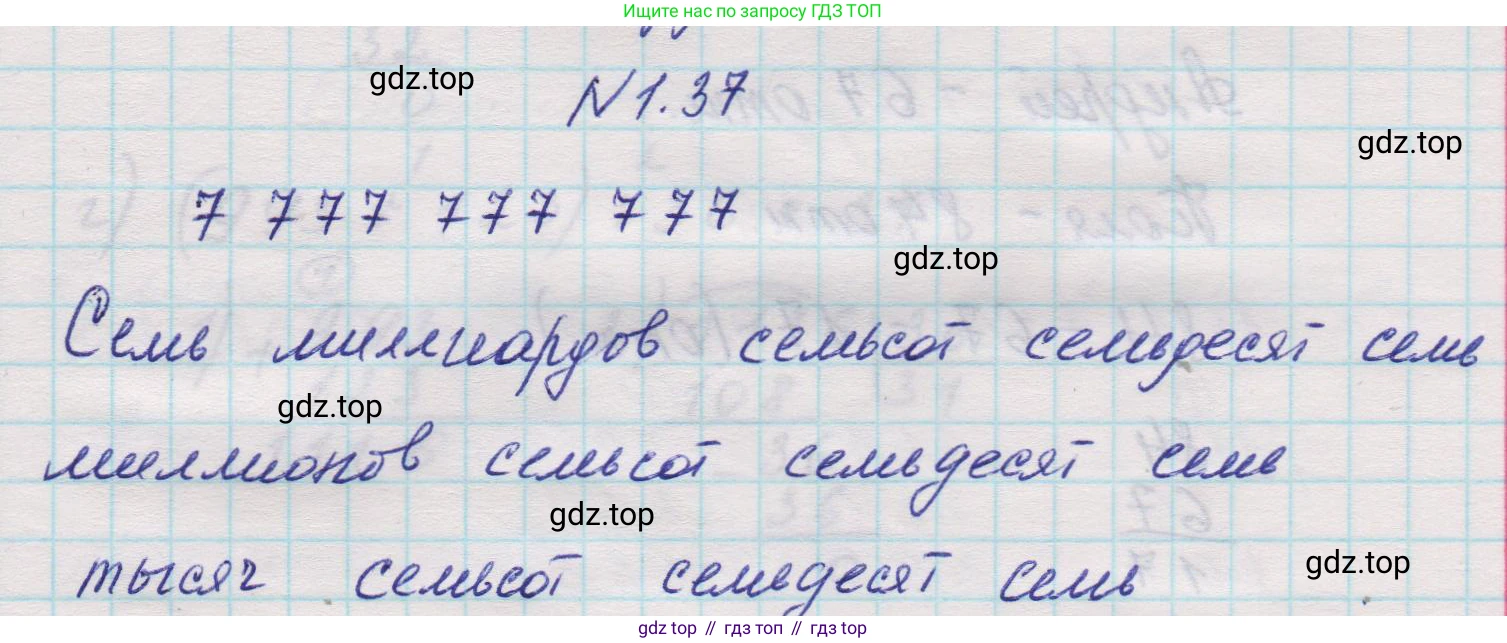 Ищите нас по запросу ГДЗ ТОП
gdz.top
N 1.37
gdz.top
7 777 777 777
gdz.top
Семь миллиардов семьсот семьдесят семь
gdz.top
миллионов семьсот семьдесят семь
gdz.top
тысяч семьсот семьдесят семь
gdz.top
gdz top // гдз топ // гдз top